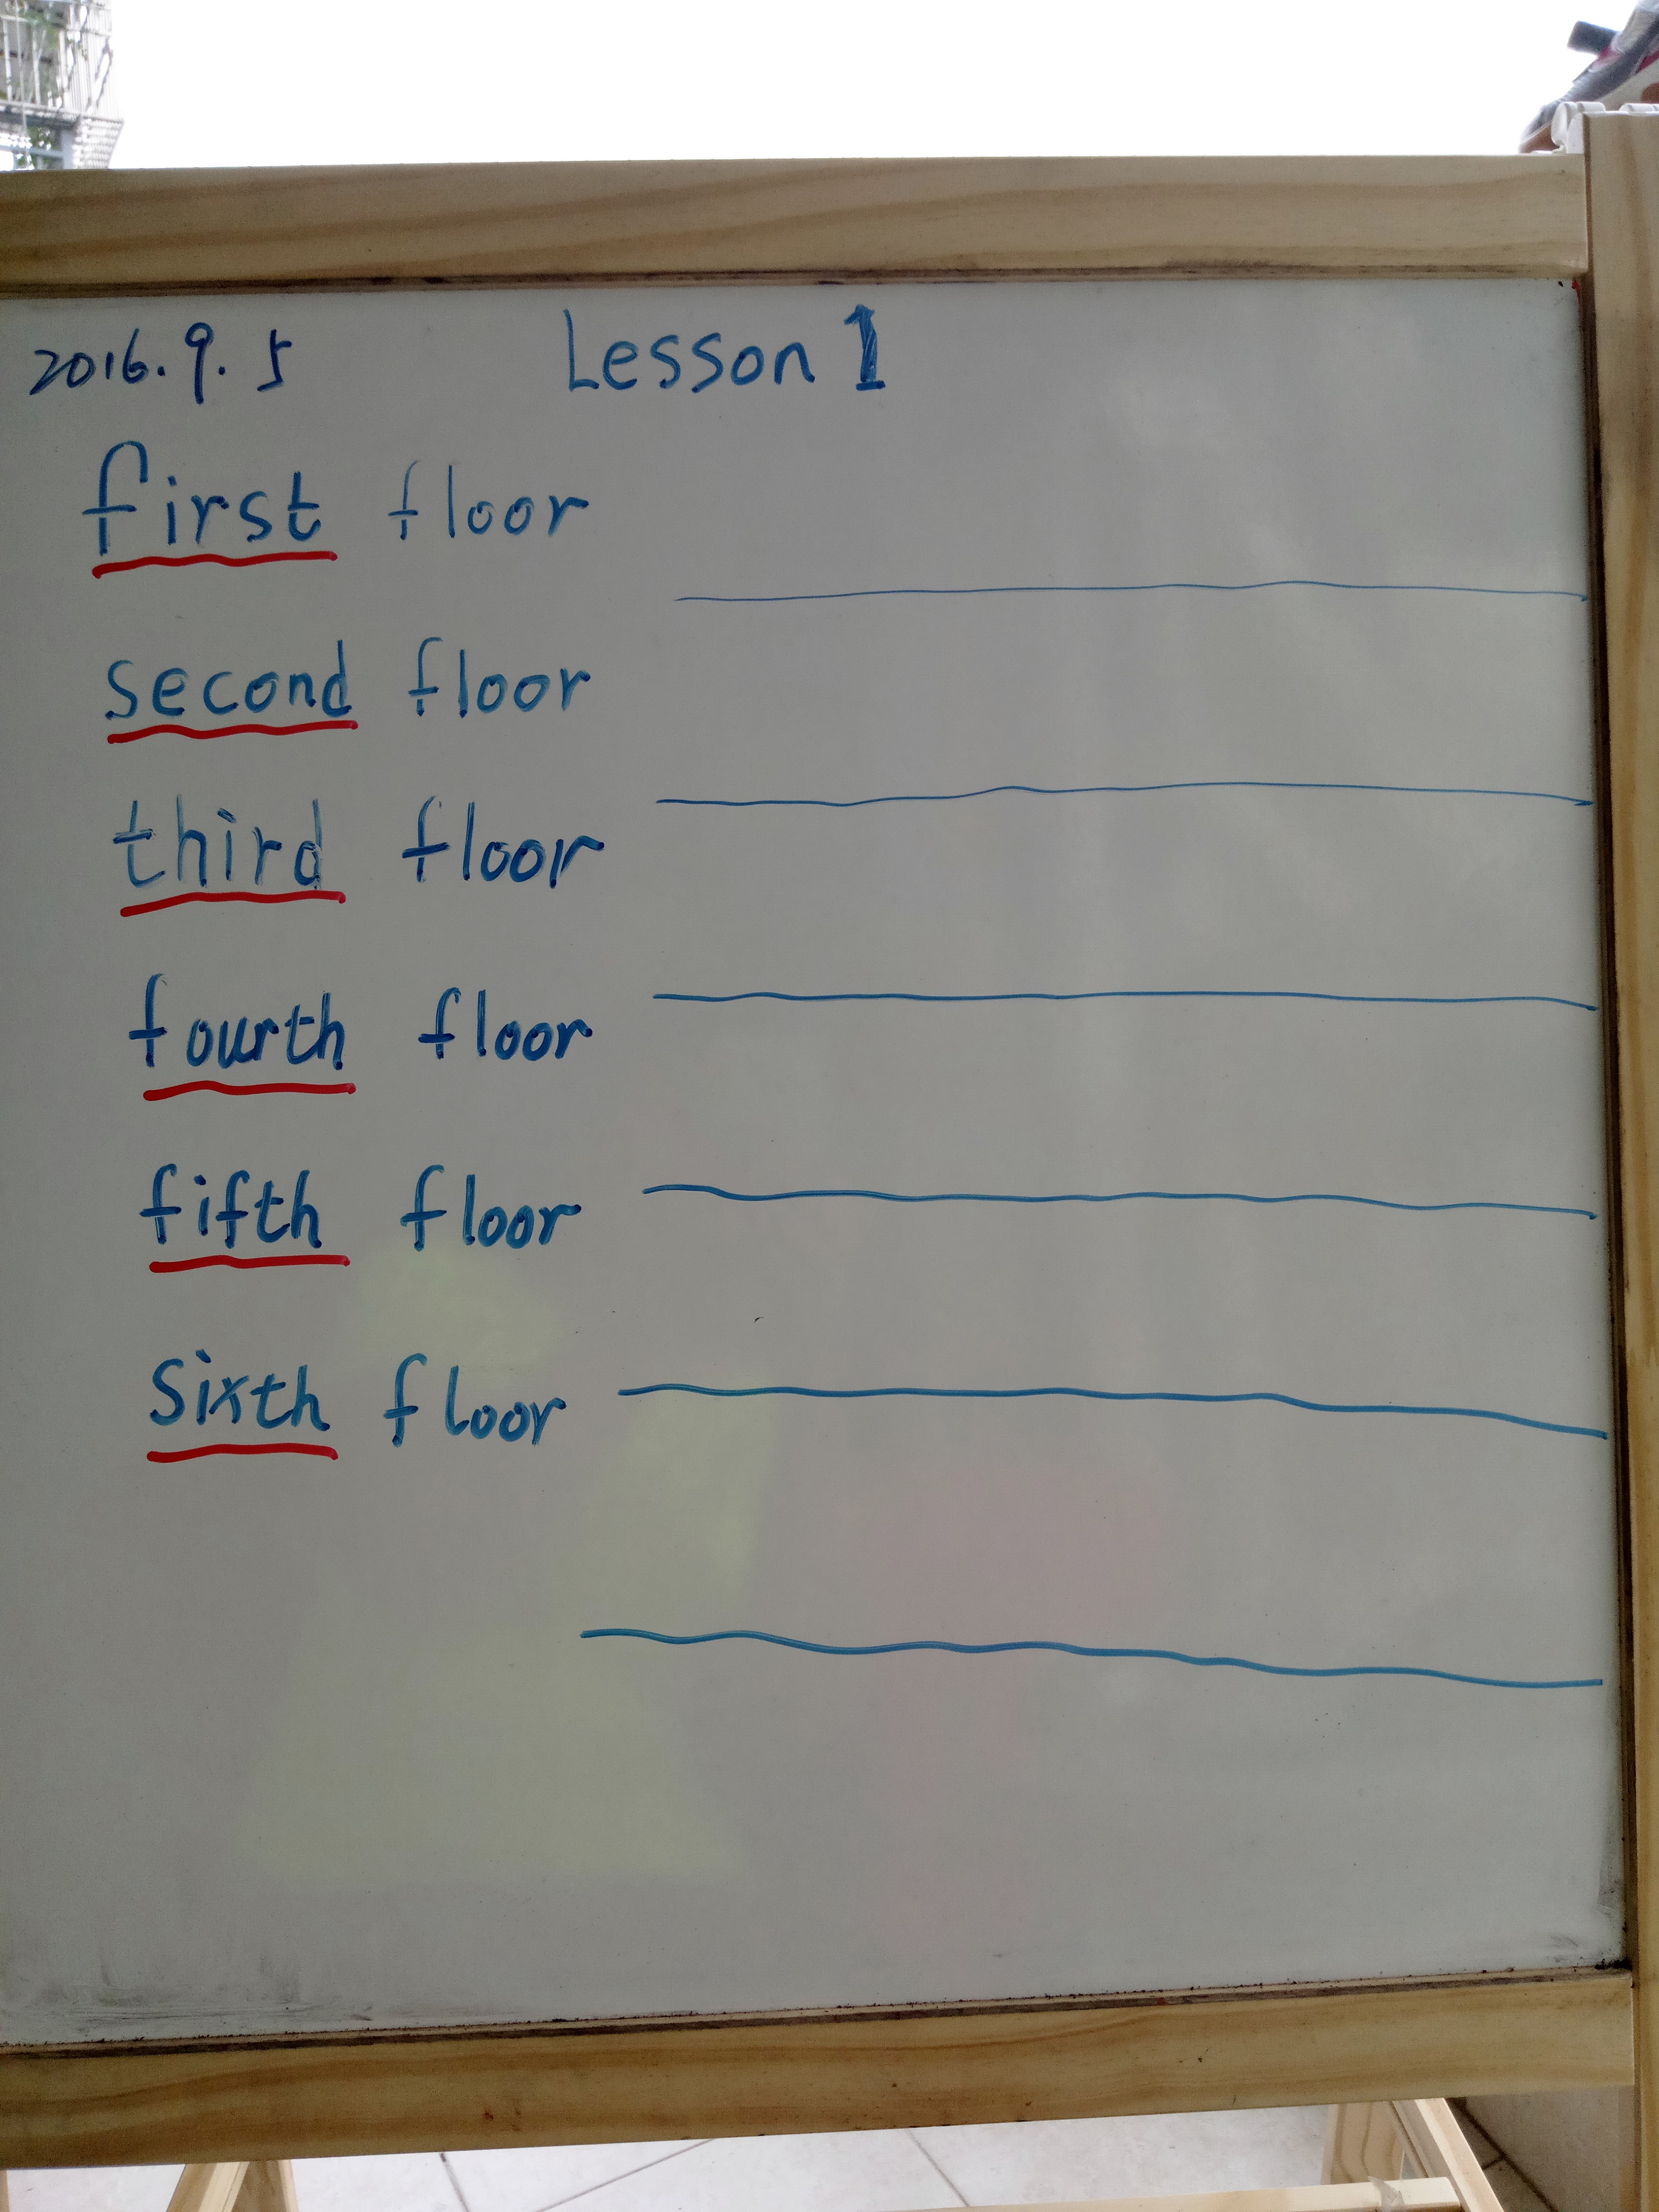 2016.9.5 Lesson 1
first floor
second floor
third floor
fourth floor
fifth floor
sixth floor